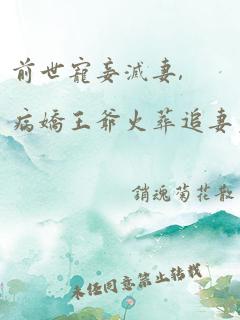 前世寵妾滅妻,
病嬌王爺火葬追妻
銷魂菊花散
未经同意禁止转载